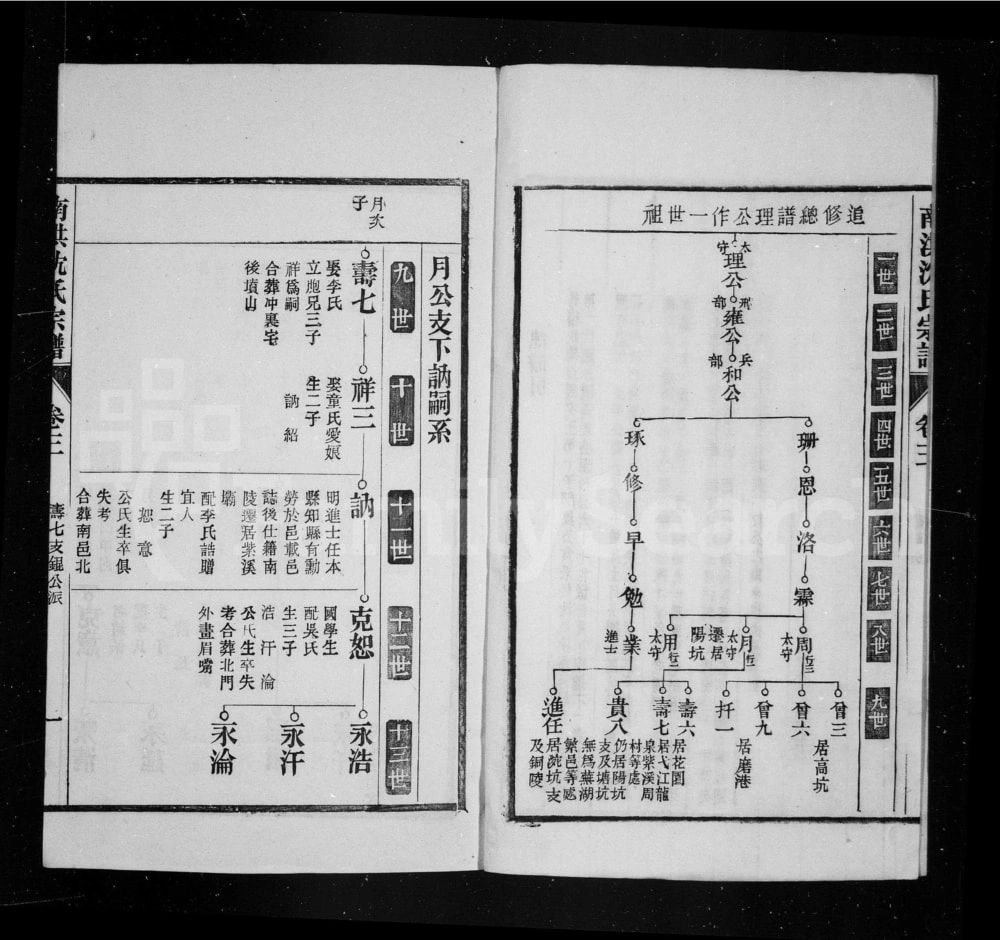 追修總譜理公作一世祖
一世
二世
三世
四世
五世
六世
七世
八世
九世
太守
理公
刑部
雍公
兵部
和公
珊
恩
洛
霖
琢
修
早
勉
周
太守
月
太守
遷居
陽坑
用
太守
業
進士
曾三
居高坑
曾六
曾九
扦一
居磨港
壽六
居花園
壽七
居弋江龍
泉紫溪周
村等處
貴八
仍居陽坑
支及塘坑
無爲蕪湖
繁邑等處
進任
居蔬坑支
及銅陵
卷三
月公支下訥嗣系
九世
十世
十一世
十二世
十三世
月次
子
壽七
娶李氏
立胞兄三子
祥爲嗣
合葬冲裏宅
後墳山
祥三
娶童氏愛娘
生二子
訥 紹
訥
明進士任本
縣知縣有勳
勞於邑載邑
誌後仕籍南
陵遷居紫溪
壩
配李氏誥贈
宜人
生二子
恕 意
公氏生卒俱
失考
合葬南邑北
克恕
國學生
配吳氏
生三子
浩 汗 淪
公氏生卒失
考合葬北門
外畫眉嘴
永浩
永汗
永淪
南淇沈氏宗譜
卷三
壽七支錕公派
一